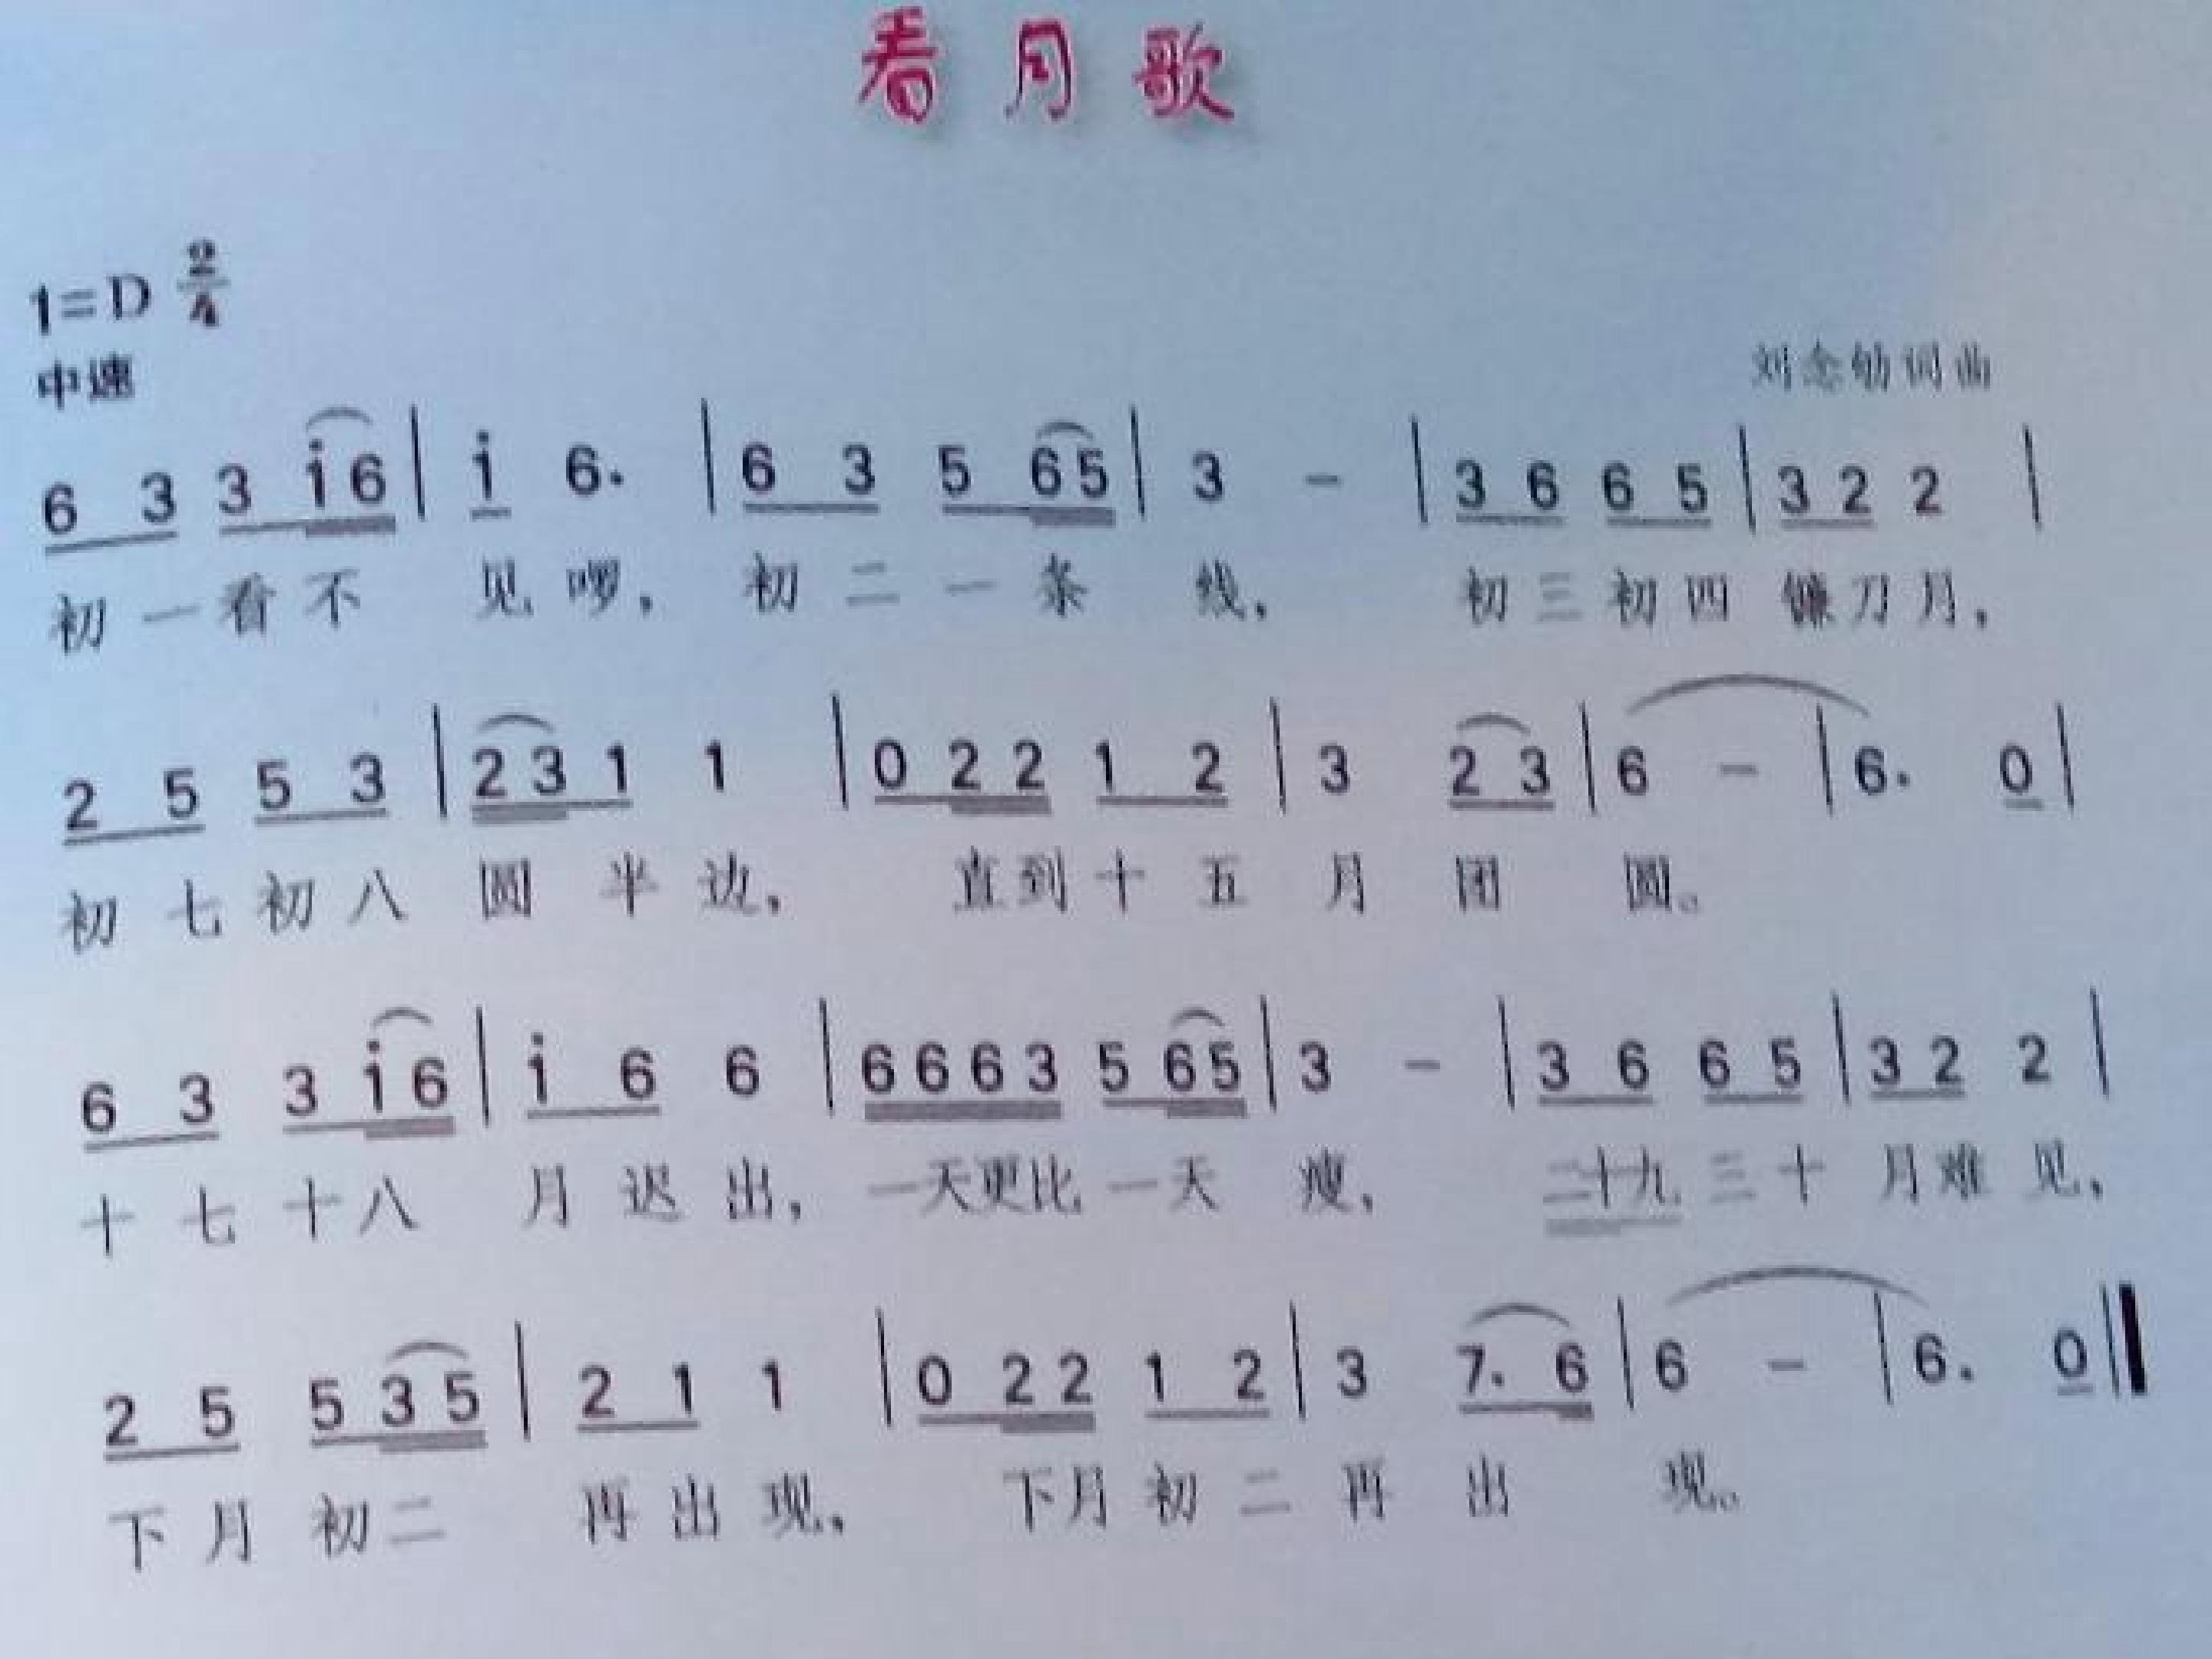 看月歌
1=D 2/4
中速
刘念劬词曲
6 3 3 i6 | i 6. | 6 3 5 65 | 3 - | 3 6 6 5 | 3 2 2 |
初一看不 见啰, 初二一条 线, 初三初四 镰刀月,
2 5 5 3 | 23 1 1 | 0 22 1 2 | 3 2 3 | 6 - | 6. 0 |
初七初八 圆半边, 直到十五 月团 圆。
6 3 3 i6 | i 6 6 | 6663 5 65 | 3 - | 3 6 6 5 | 3 2 2 |
十七十八 月迟出, 一天更比一天 瘦, 二十九三十 月难见,
2 5 5 35 | 2 1 1 | 0 22 1 2 | 3 7. 6 | 6 - | 6. 0 ‖
下月初二 再出现, 下月初二 再出 现。